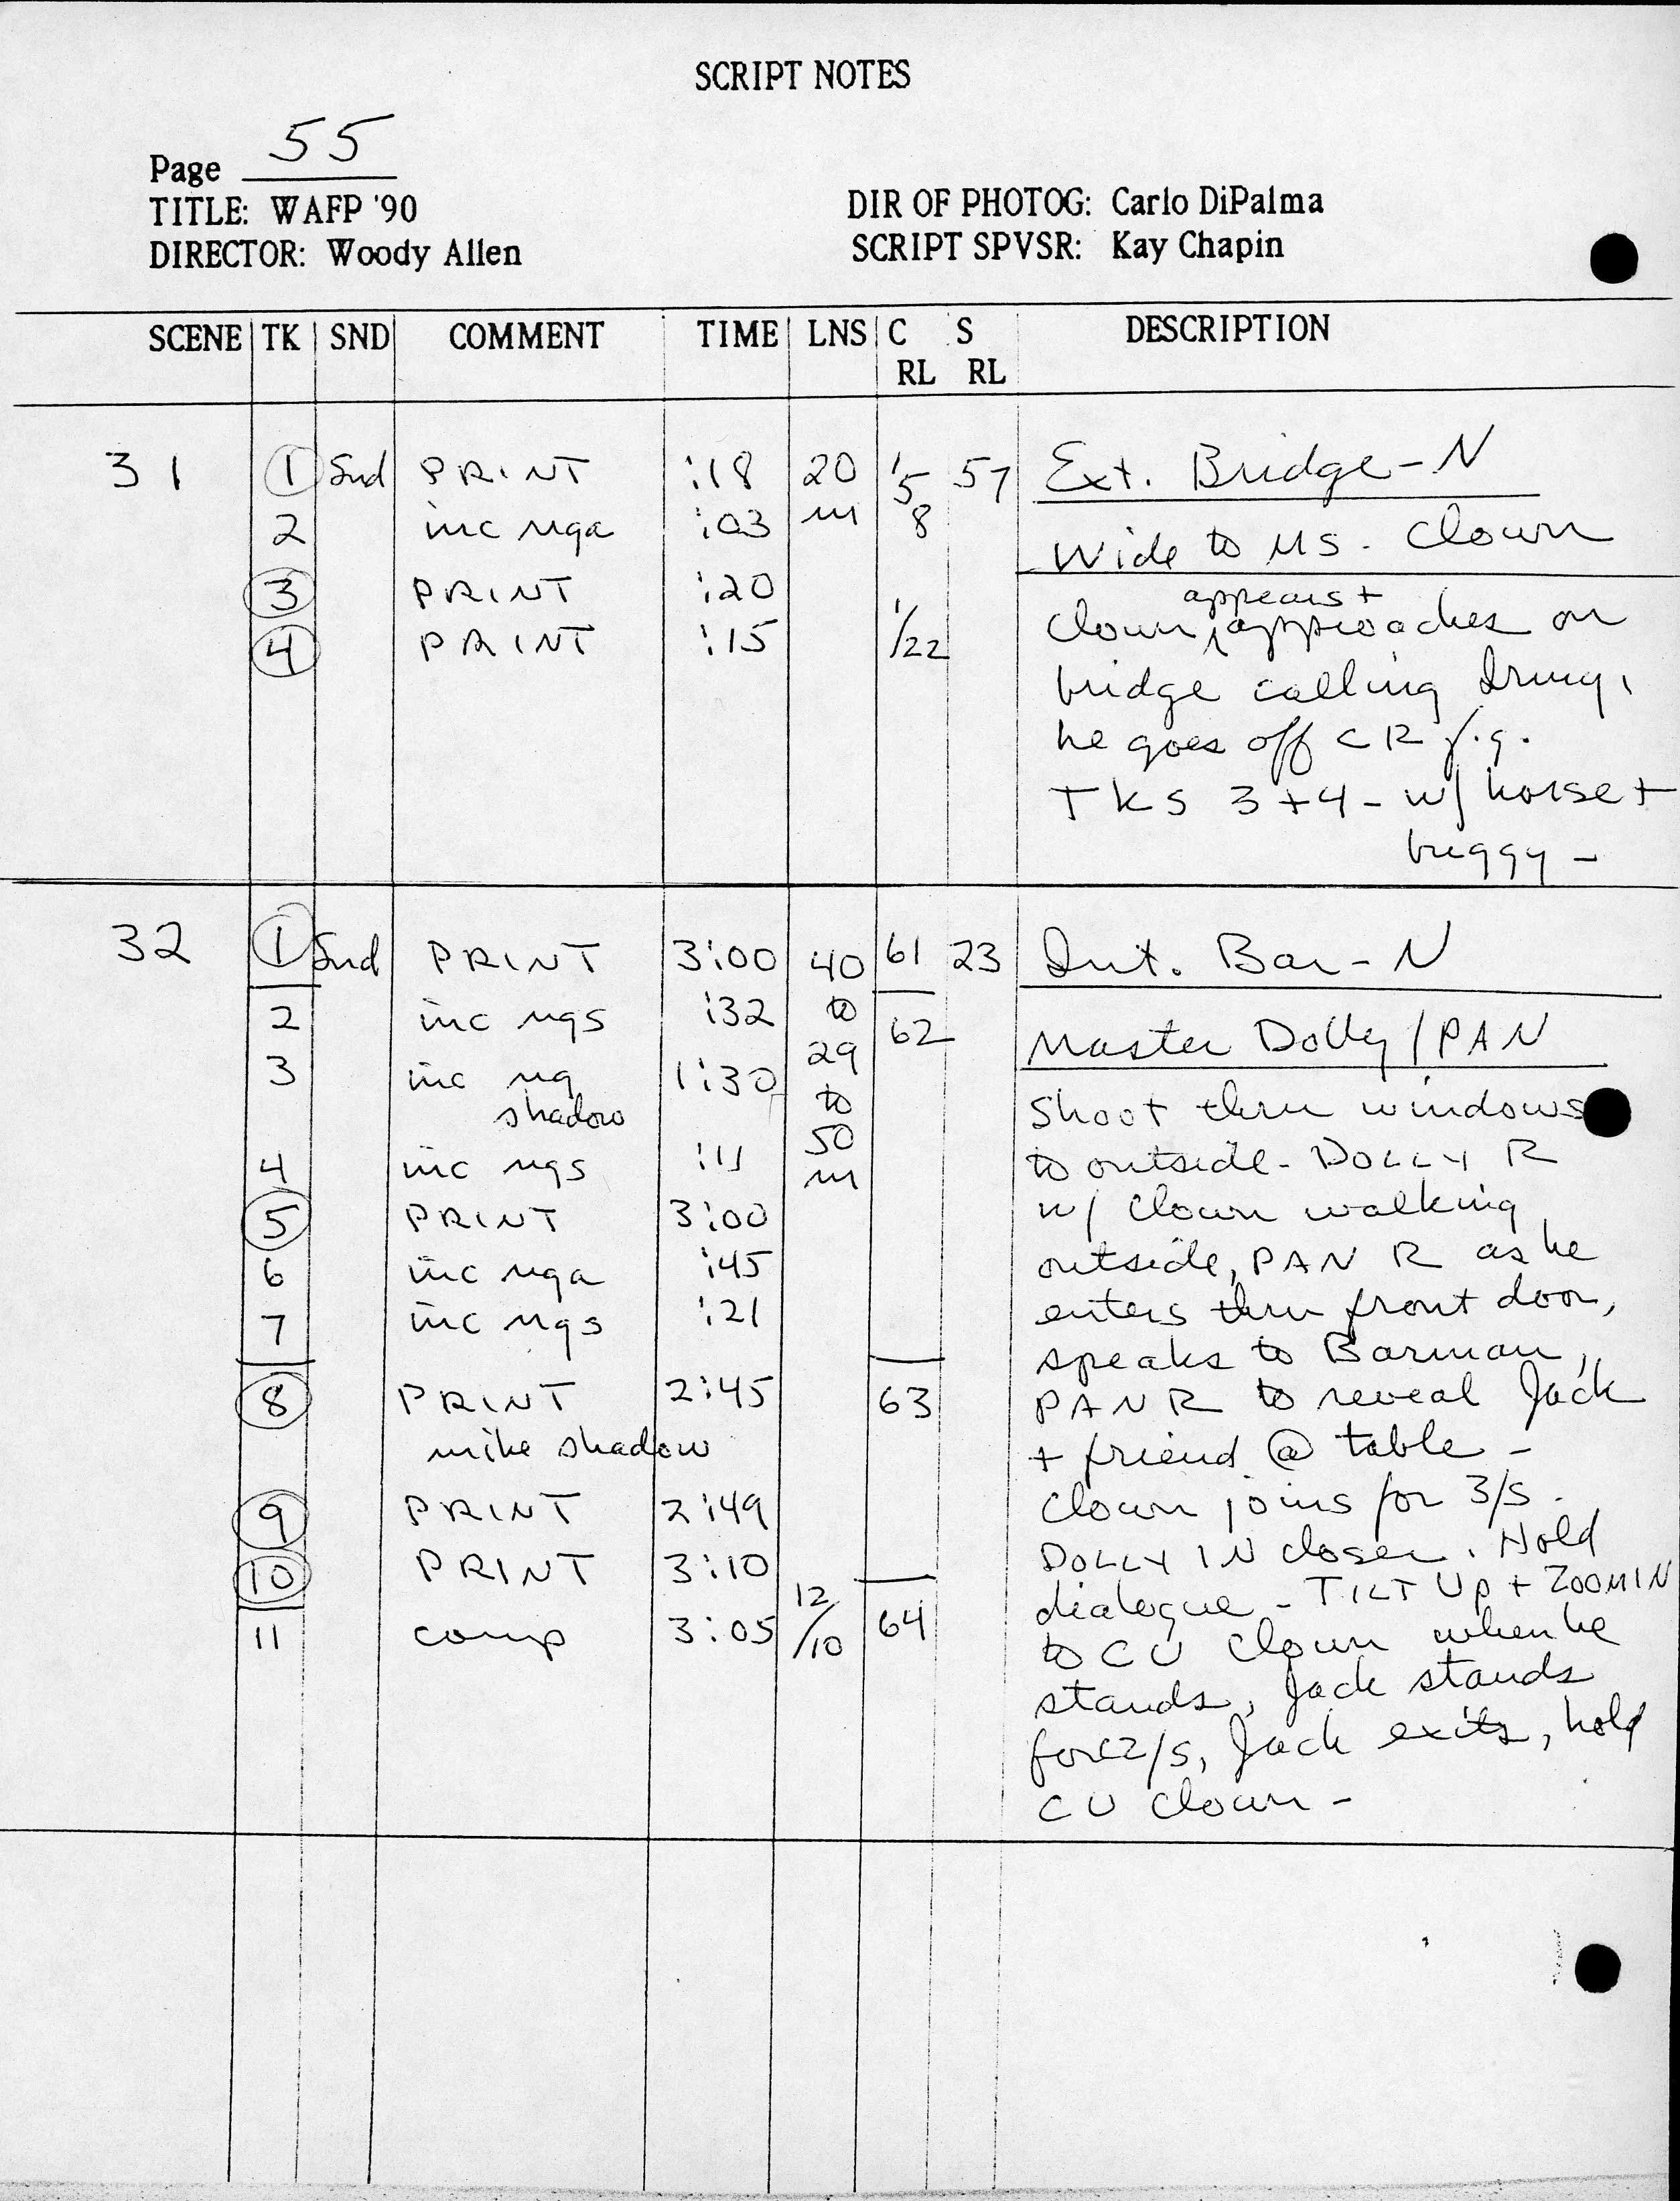 SCRIPT NOTES
Page 55
TITLE: WAFP '90
DIRECTOR: Woody Allen
DIR OF PHOTOG: Carlo DiPalma
SCRIPT SPVSR: Kay Chapin
SCENE TK SND COMMENT TIME LNS C RL S RL DESCRIPTION
31 1 Snd PRINT :18 20 1/5 57 Ext. Bridge - N
2 inc nga :03 m 8 Wide to MS. Clown
3 PRINT :20 appears +
4 PRINT :15 1/22 Clown approaches on
bridge calling Irmy,
he goes off CR f.g.
TKS 3+4 - w/ horse +
buggy -
32 1 Snd PRINT 3:00 40 61 23 Int. Bar - N
2 inc ngs :32 to 62 Master Dolly / PAN
3 inc ng 1:30 29
shadow to Shoot thru windows
4 inc ngs :11 50 m to outside - DOLLY R
5 PRINT 3:00 w/ Clown walking
6 inc nga :45 outside, PAN R as he
7 inc ngs :21 enters thru front door,
speaks to Barman,
8 PRINT 2:45 63 PAN R to reveal Jack
mike shadow + friend @ table -
9 PRINT 2:49 Clown joins for 3/S.
10 PRINT 3:10 DOLLY IN closer. Hold
dialogue - TILT UP + ZOOM IN
11 comp 3:05 12/10 64 to CU Clown when he
stands, Jack stands
for 2/S, Jack exits, hold
CU Clown -